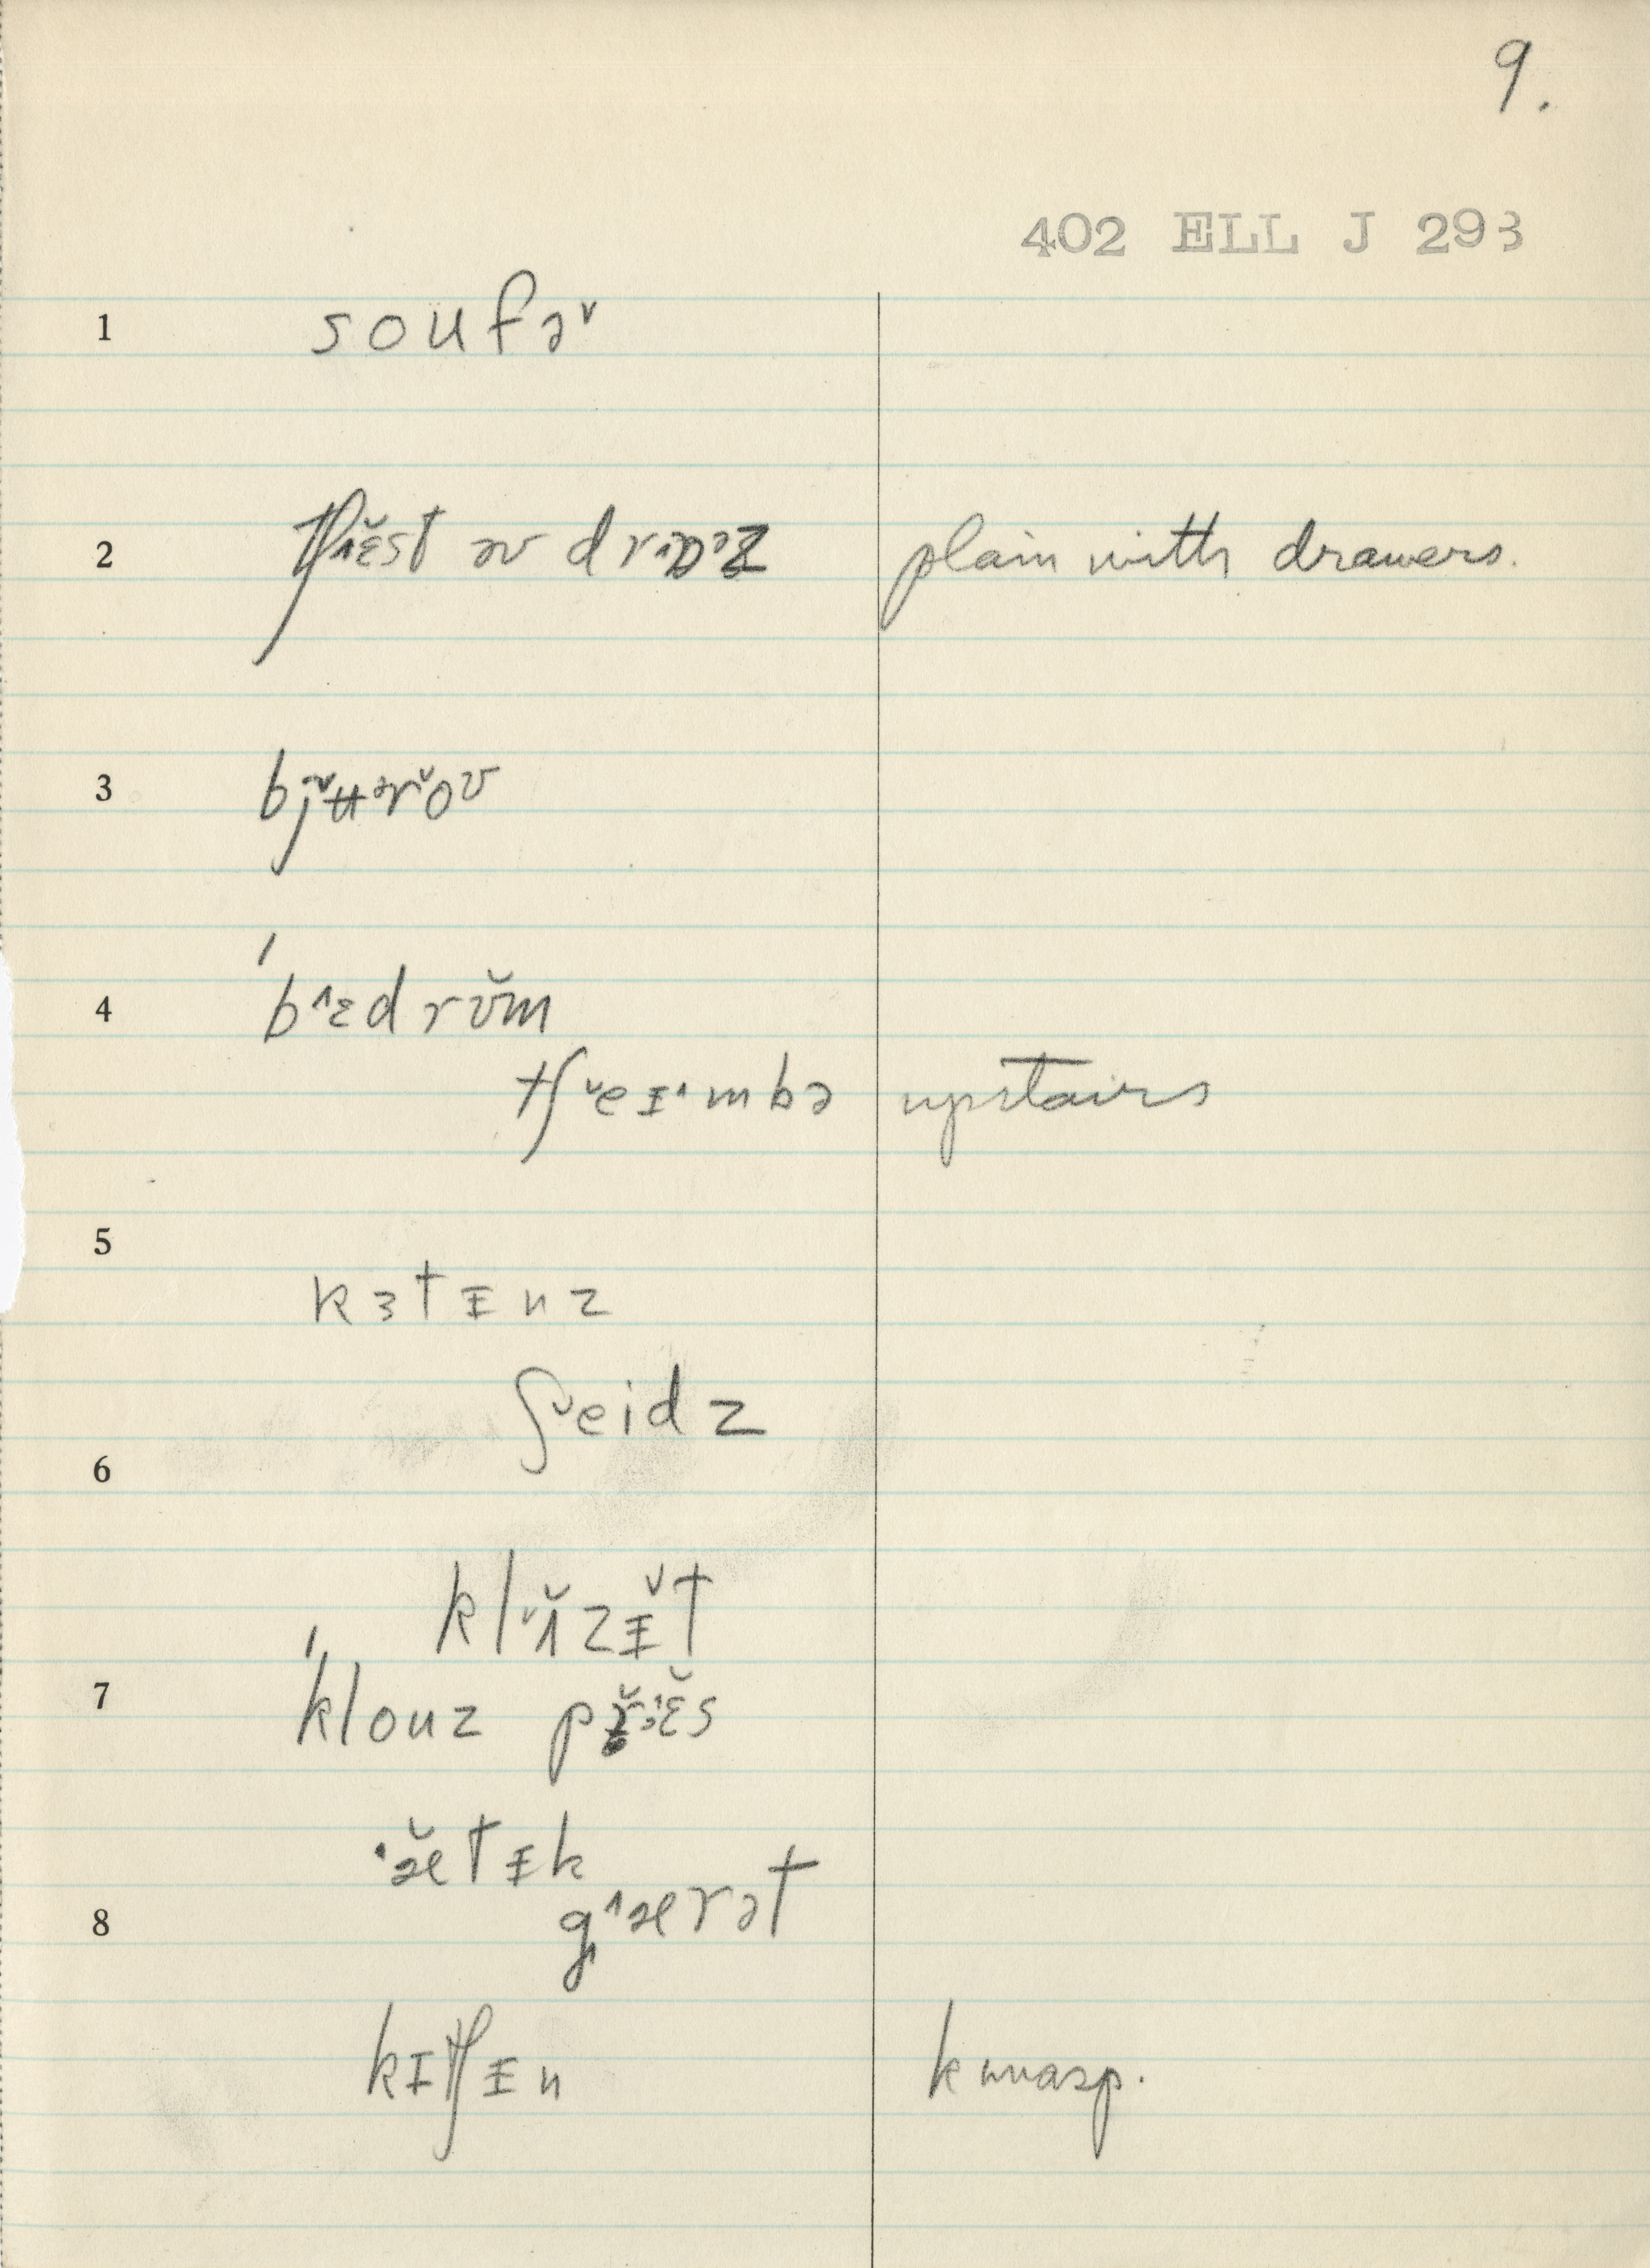 9.
402 ELL J 293
1 soufə˅
2 tʃ˄ɛ̆st əv drɒ˄əz plain with drawers.
3 bj˅ʉɚr˅oʊ
4 ˈb˄ɛdrʊ̆m
tʃ˅eɪ˄mbə upstairs
5
kɜtɪnz
ʃ˅eidz
6
kl˅ɑ̆zɪ̆t
7 ˈklouz pr˄ɛ̆s
˄æ̆tɪk
8 g˄ærət
kɪtʃɪn k